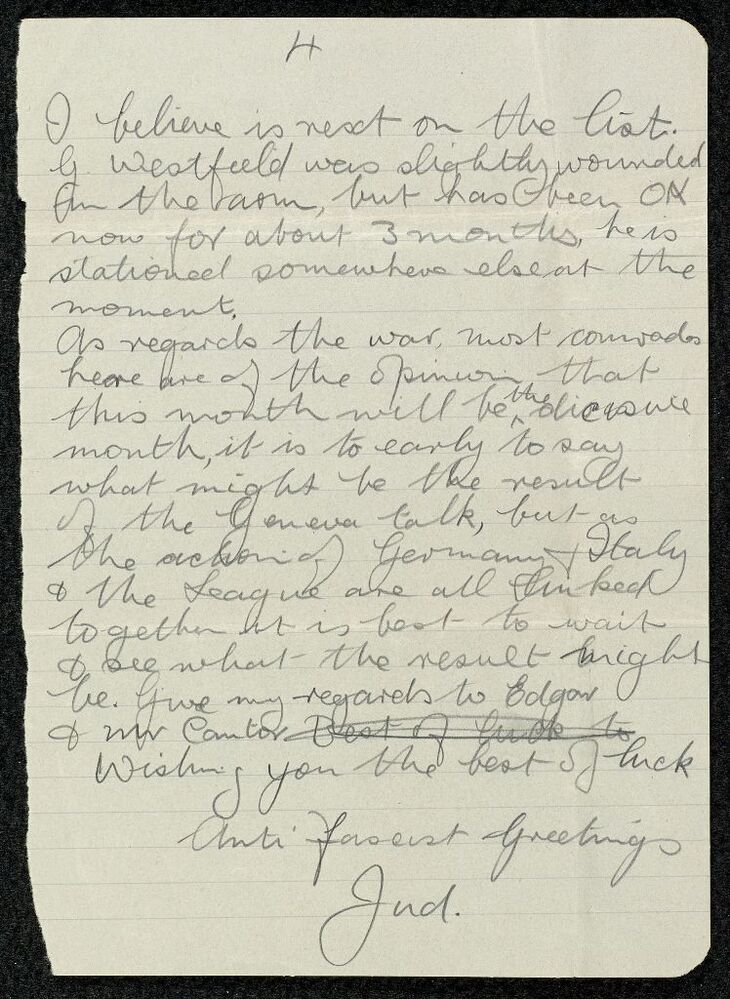 4
I believe is next on the list.
G. Westfield was slightly wounded
in the arm, but has been OK
now for about 3 months, he is
stationed somewhere else at the
moment.
As regards the war, most comrades
here are of the opinion that
this month will be the dicesive
month, it is to early to say
what might be the result
of the Geneva talk, but as
the action of Germany & Italy
& the League are all linked
together it is best to wait
& see what the result might
be. Give my regards to Edgar
& Mr Cantor Best of luck to
Wishing you the best of luck
Anti Fascist Greetings
Jud.